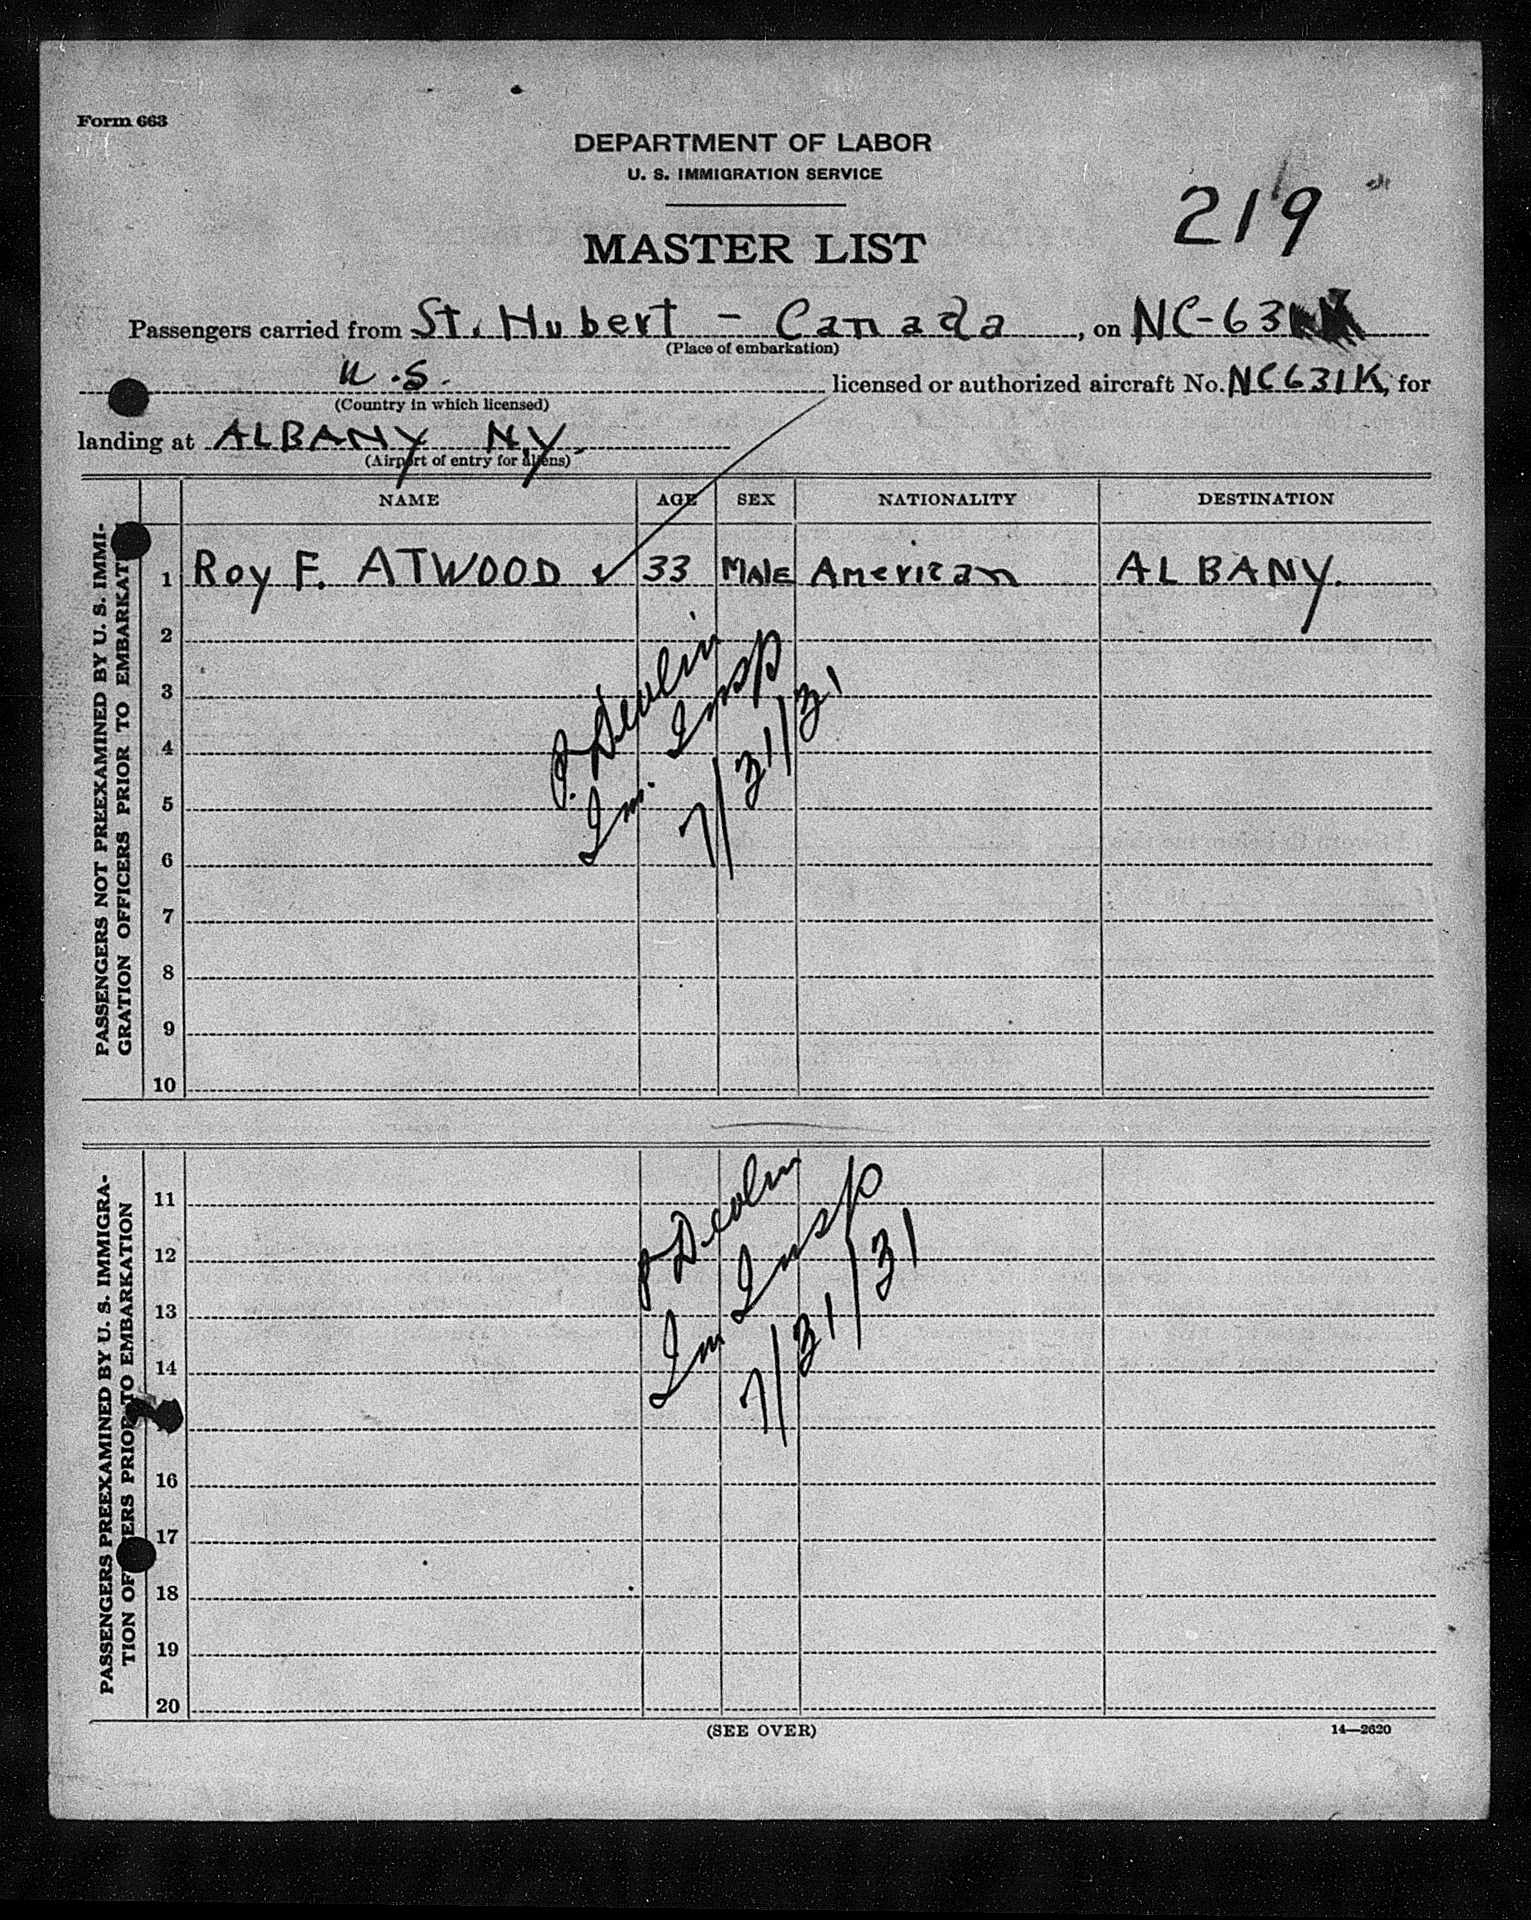 Form 663
DEPARTMENT OF LABOR
U. S. IMMIGRATION SERVICE
219
MASTER LIST
Passengers carried from St. Hubert - Canada, on NC-63
(Place of embarkation)
U.S. licensed or authorized aircraft No. NC631K, for
(Country in which licensed)
landing at ALBANY NY.
(Airport of entry for aliens)
NAME AGE SEX NATIONALITY DESTINATION
PASSENGERS NOT PREEXAMINED BY U. S. IMMI-
GRATION OFFICERS PRIOR TO EMBARKAT
1 Roy F. ATWOOD ✓ 33 MALE American ALBANY.
2
3
4
5
6
7
8
9
10
J. Devlin
Im. Insp
7/31/31
PASSENGERS PREEXAMINED BY U. S. IMMIGRA-
TION OF ERS PRIOR TO EMBARKATION
11
12
13
14
16
17
18
19
20
J Devlin
Im Insp
7/31/31
(SEE OVER)
14—2620